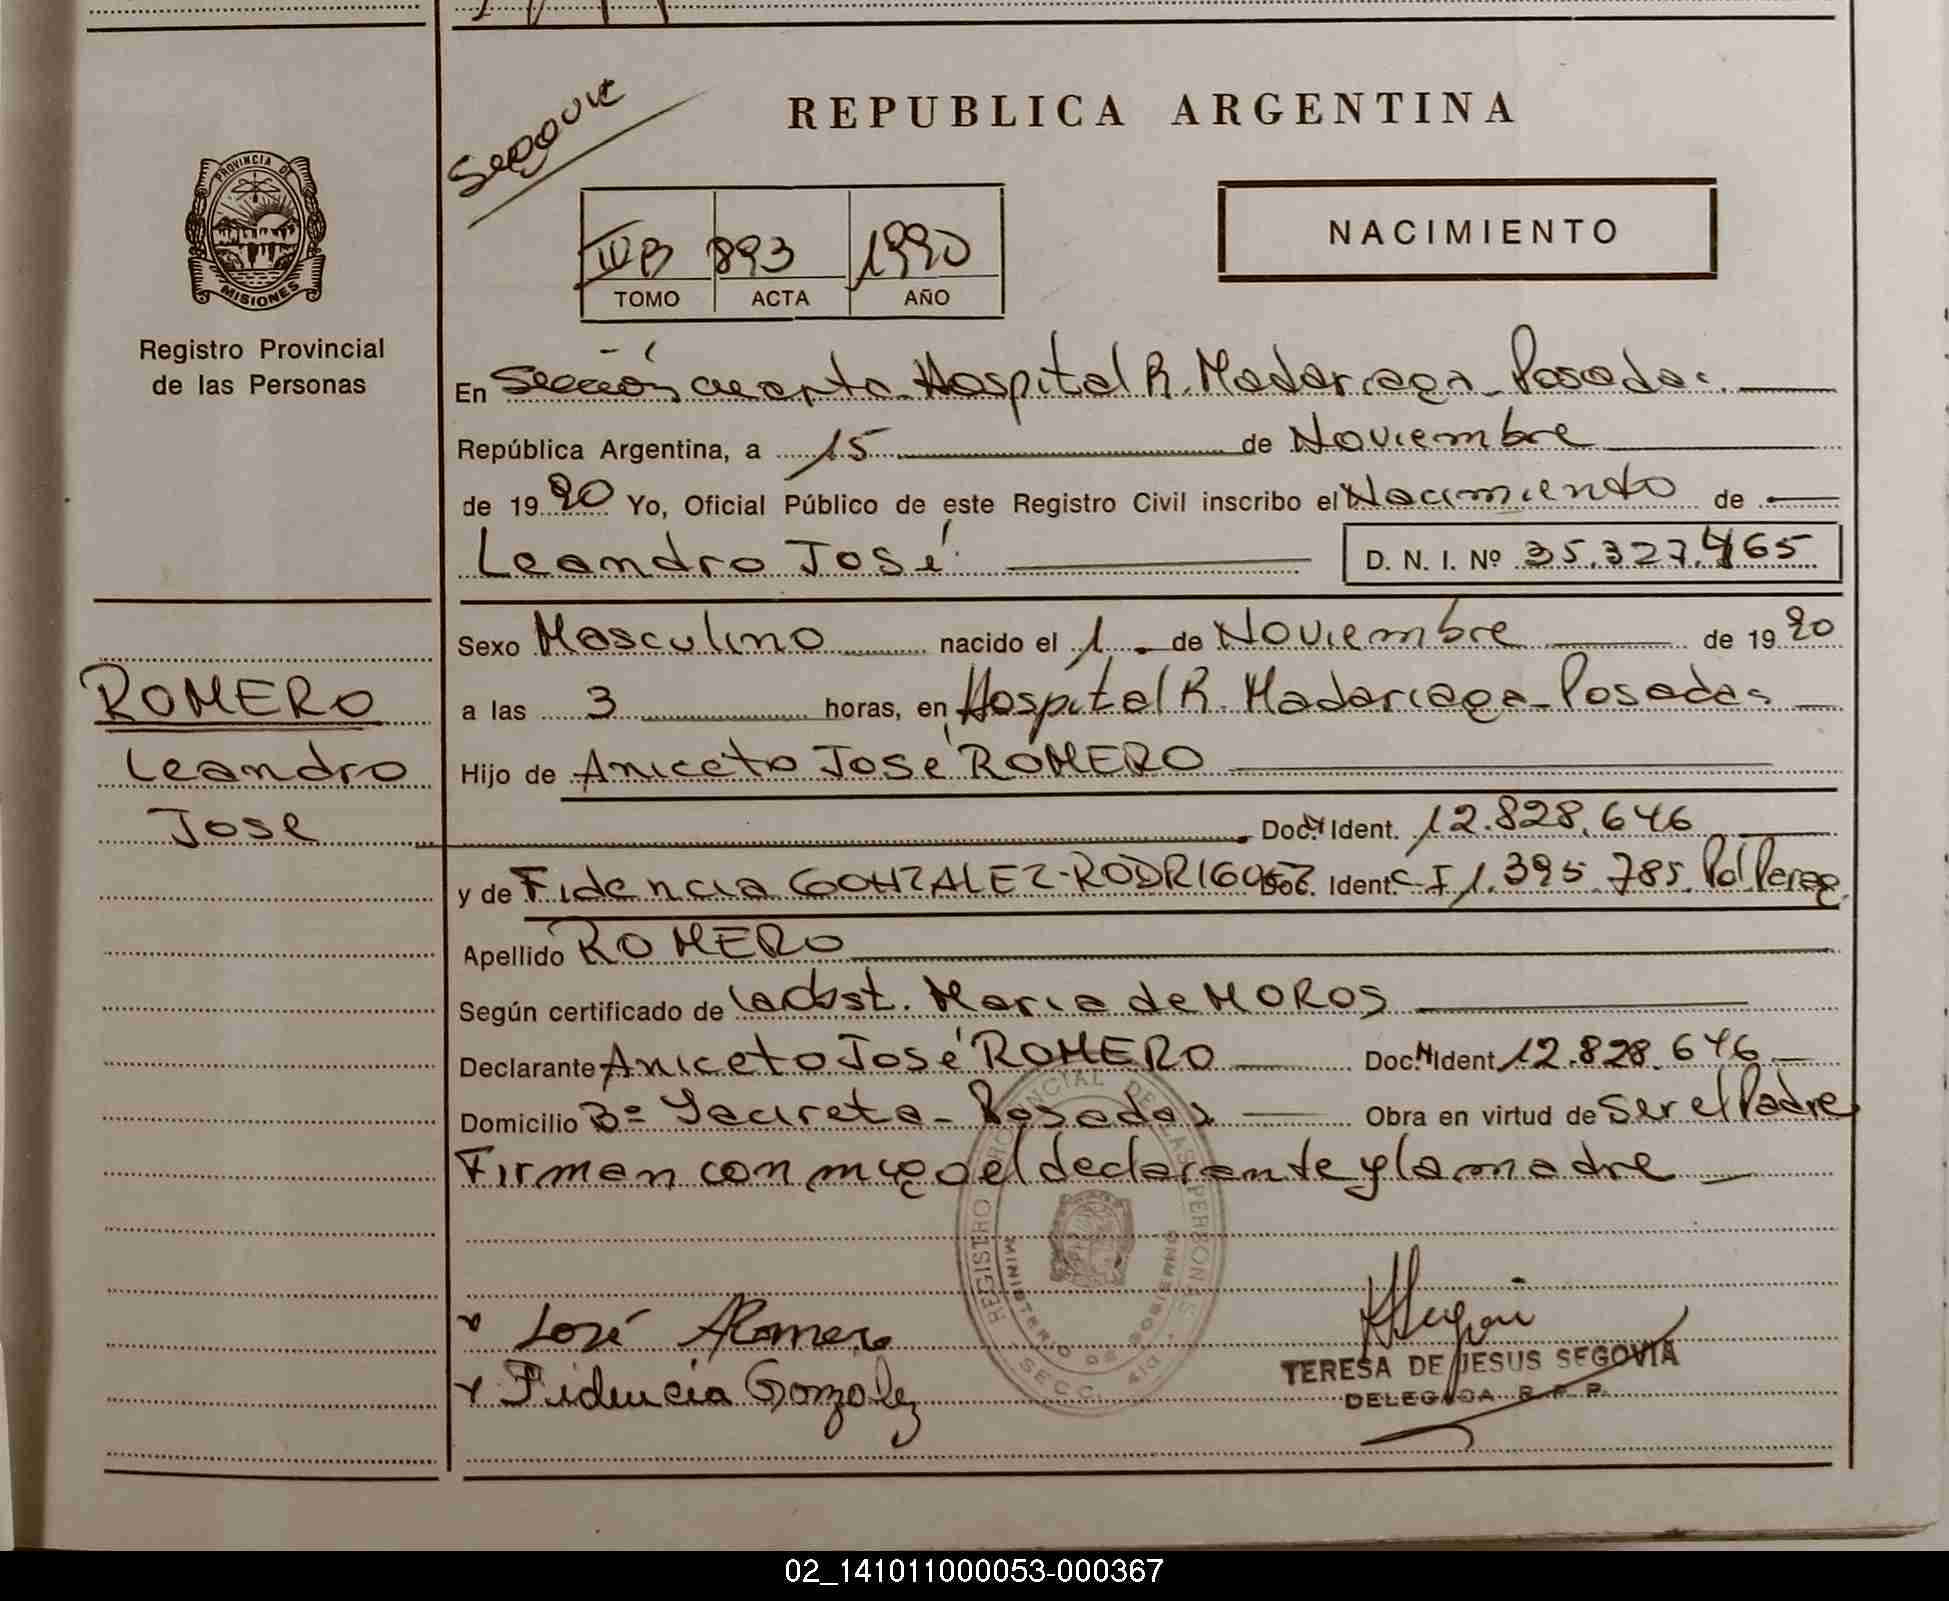 Segovia
REPUBLICA ARGENTINA
PROVINCIA DE
MISIONES
Registro Provincial
de las Personas
893 1990
TOMO ACTA AÑO
NACIMIENTO
En Sección cuarta Hospital R. Madariaga - Posadas.
República Argentina, a 15 de Noviembre
de 1990 Yo, Oficial Público de este Registro Civil inscribo el Nacimiento de
Leandro José D. N. I. Nº 35.327.465
Sexo Masculino nacido el 1 de Noviembre de 1990
ROMERO
Leandro
Jose
a las 3 horas, en Hospital R. Madariaga - Posadas
Hijo de Aniceto José ROMERO
Doc. Ident. 12.828.646
y de Fidencia GONZALEZ-RODRIGUEZ Doc. Ident. C I 1.395.785. Pol
Apellido ROMERO
Según certificado de la Obst. Maria de MOROS
Declarante Aniceto José ROMERO Doc. Ident 12.828.646
Domicilio Bº Yacireta - Posadas Obra en virtud de Ser el Padre
Firman conmigo el declarante y la madre
REGISTRO PROVINCIAL DE LAS PERSONAS
MINISTERIO DE GOBIERNO
SECC. 4ta
José Romero
Fidencia Gonzalez
TERESA DE JESUS SEGOVIA
DELEGADA R. P. P.
02_141011000053-000367